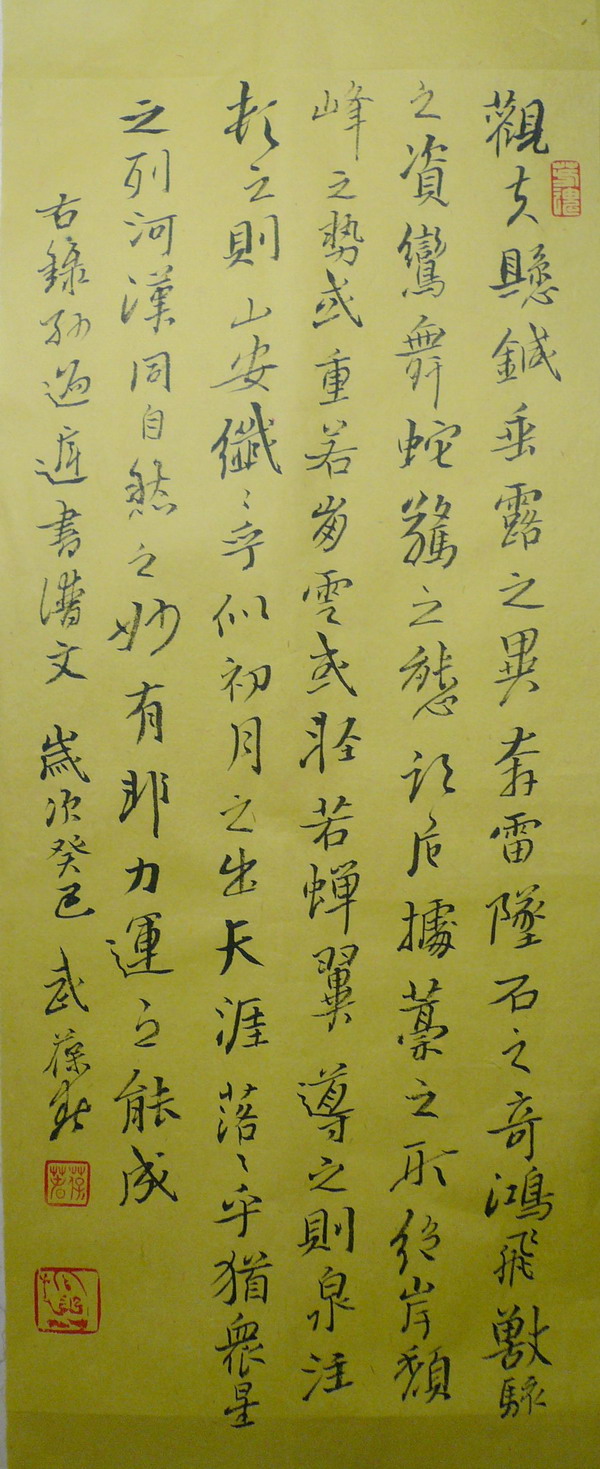 觀夫懸鍼垂露之異奔雷墜石之奇鴻飛獸駭
之資鸞舞蛇驚之態絕岸頹
峰之勢或重若崩雲或輕若蟬翼導之則泉注
頓之則山安纖〻乎似初月之出天涯落〻乎猶眾星
之列河漢同自然之妙有非力運之能成
右錄孫過庭書譜文 歲次癸巳 武葆